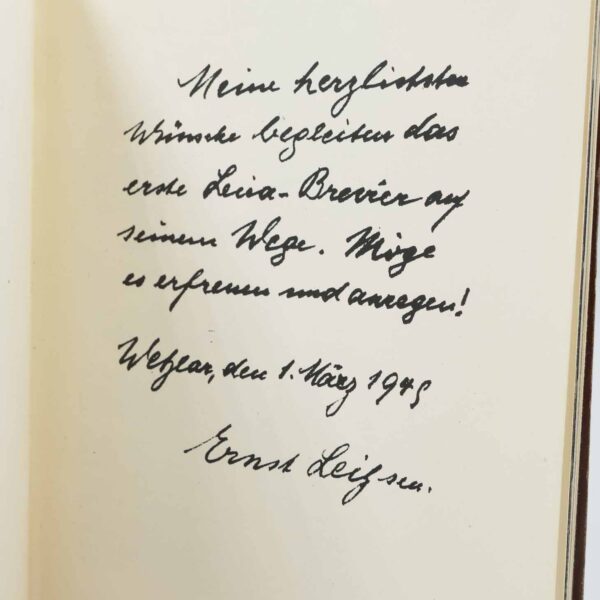 Meine herzlichsten
Wünsche begleiten das
erste Leica-Brevier auf
seinem Wege. Möge
es erfreuen und anregen!
Wetzlar, den 1. März 1949
Ernst Leitz sen.